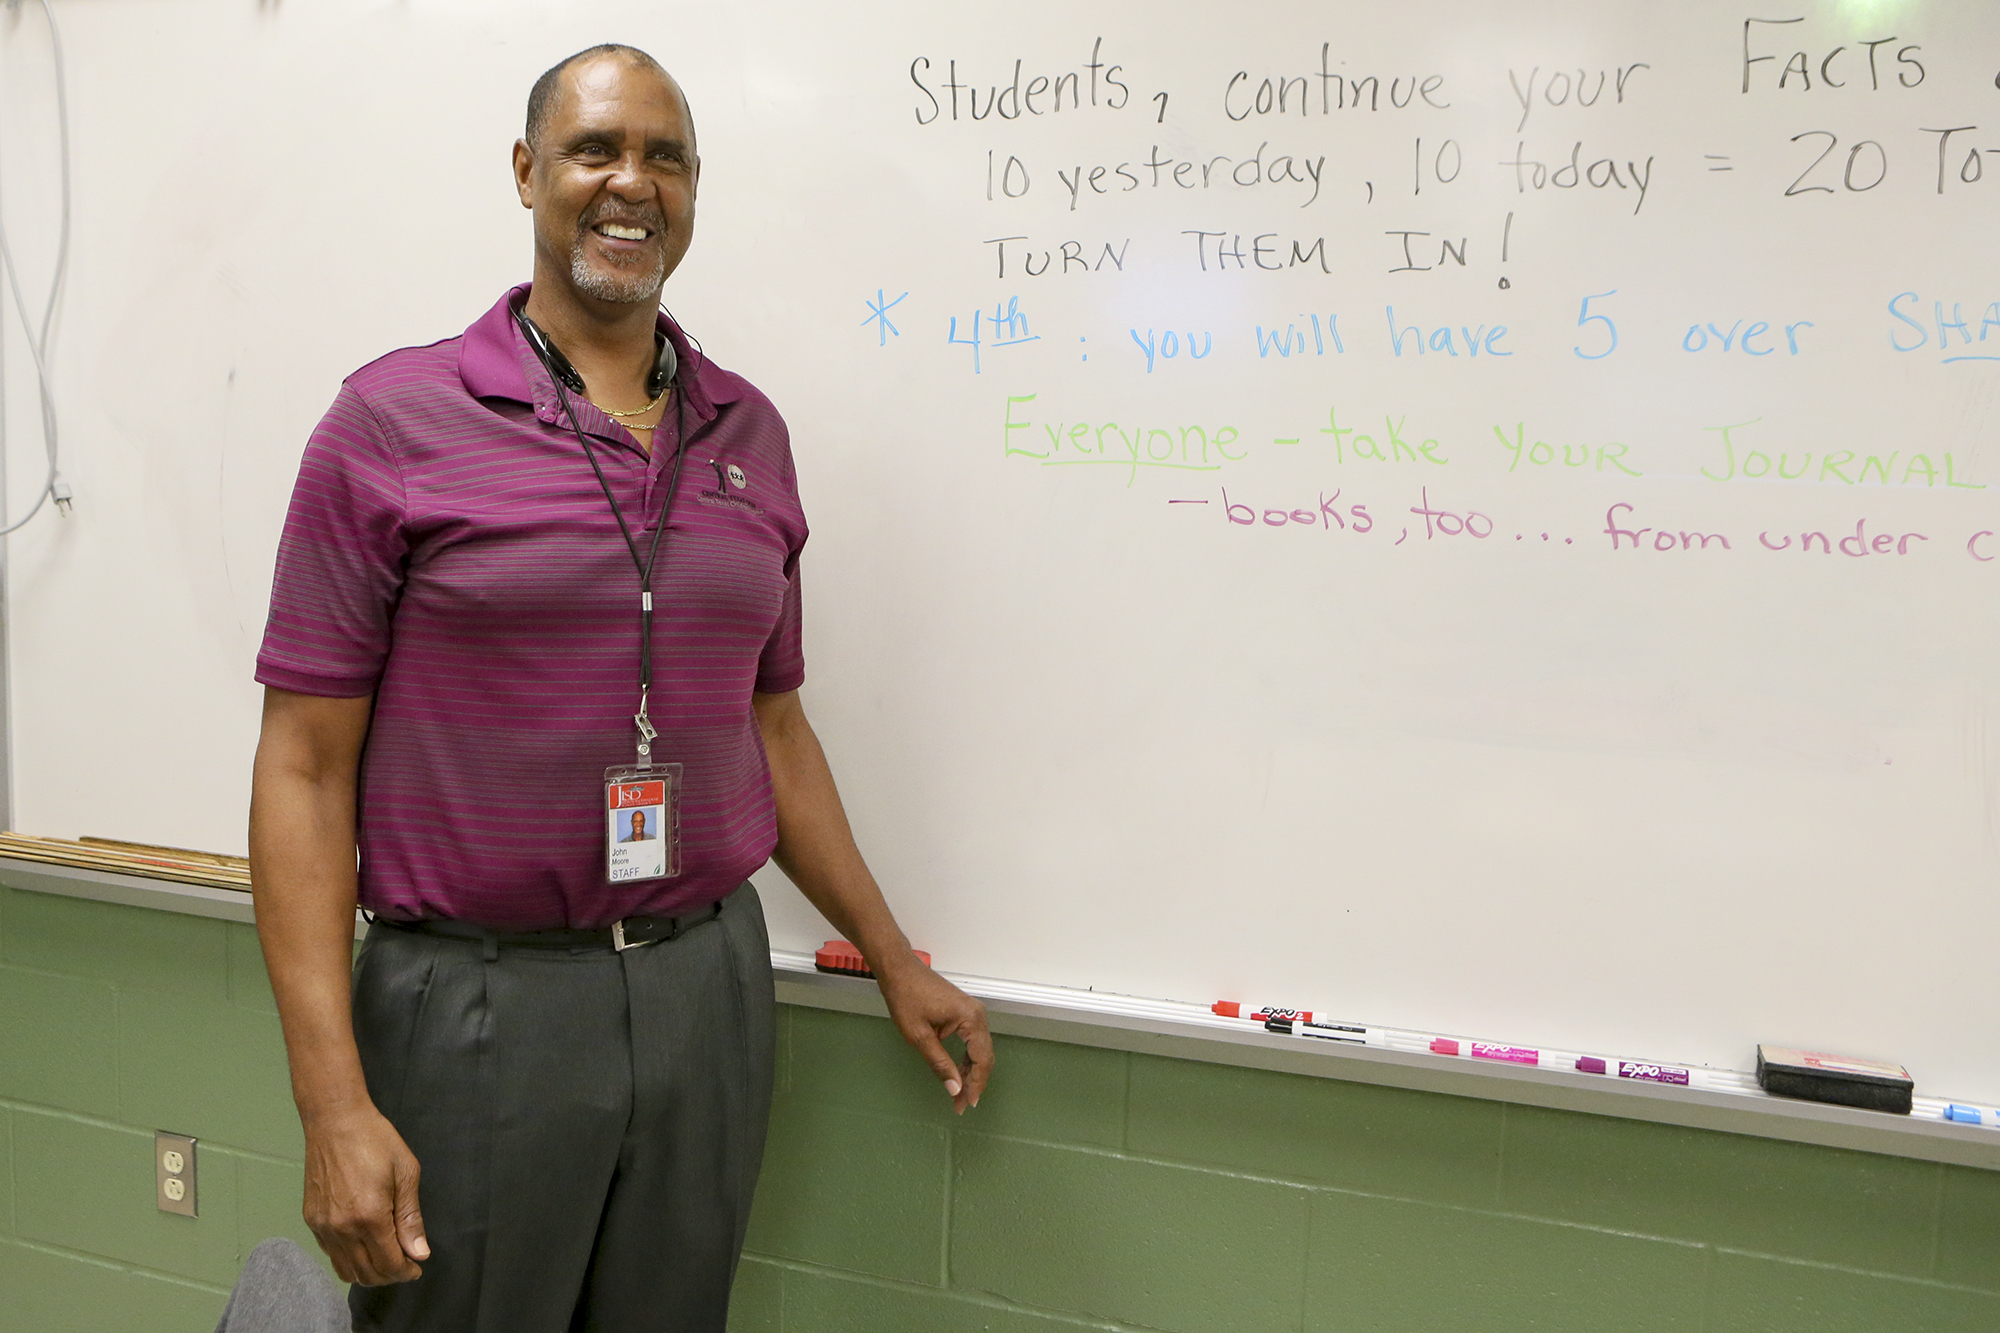 Students, continue your FACTS
10 yesterday, 10 today = 20 To
TURN THEM IN!
* 4th : you will have 5 over SHA
Everyone - take YOUR JOURNAL
- books, too ... from under c
JISD
John
Moore
STAFF
EXPO 2
EXPO
EXPO